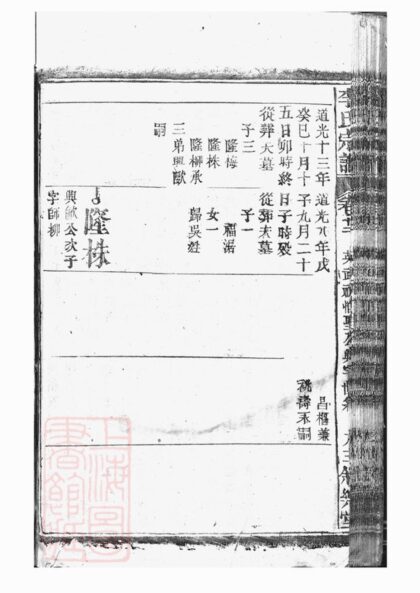 李氏宗譜
道光十三年
癸巳十月十
五日卯時終
從葬大墓
子三
隆梅
隆株
隆柳承
三弟興猷
嗣
道光八年戊
子九月二十
日子時歿
從葬大墓
子一
女一
歸吳姓
隆株
興猷公次子
字師柳
昌榴兼
祧壽禾嗣
上海圖書館藏